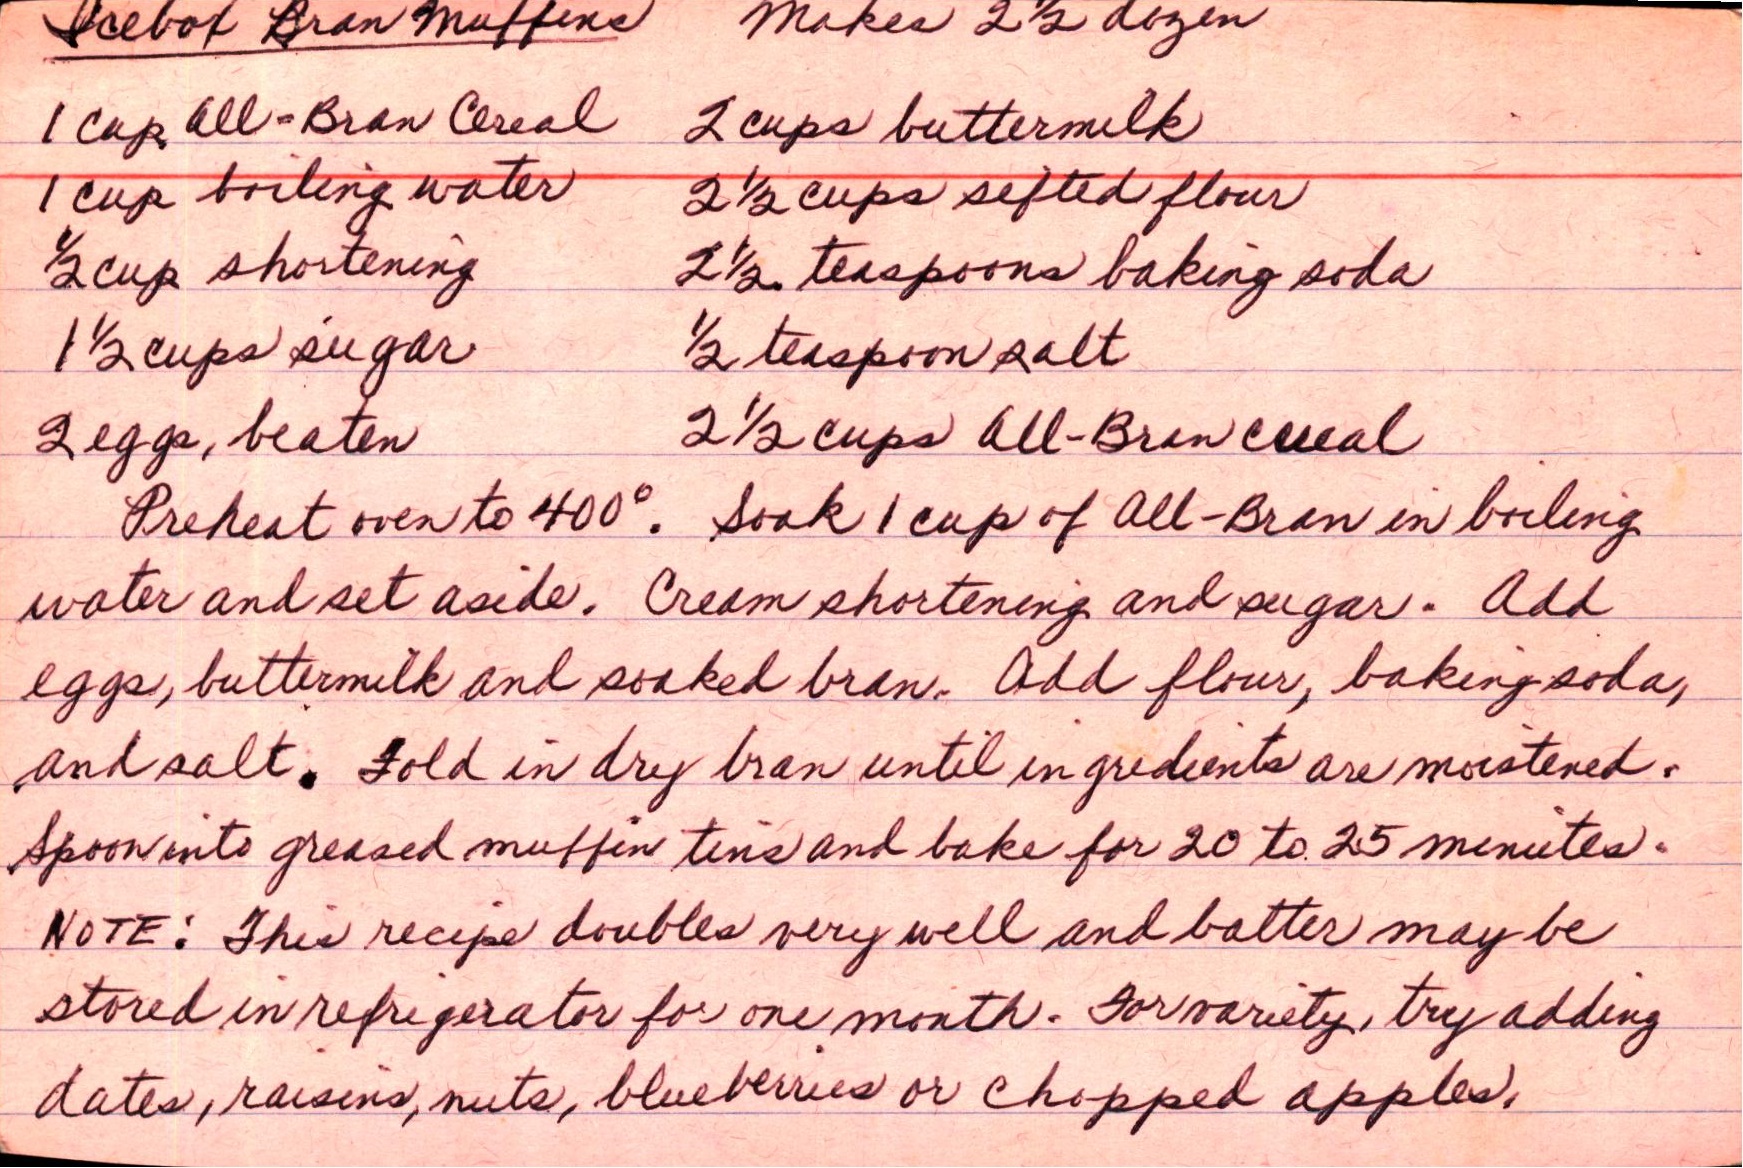 Icebox Bran Muffins Makes 2 1/2 dozen
1 cup All-Bran Cereal 2 cups buttermilk
1 cup boiling water 2 1/2 cups sifted flour
1/2 cup shortening 2 1/2. teaspoons baking soda
1 1/2 cups sugar 1/2 teaspoon salt
2 eggs, beaten 2 1/2 cups All-Bran cereal
Preheat oven to 400°. Soak 1 cup of All-Bran in boiling
water and set aside. Cream shortening and sugar. Add
eggs, buttermilk and soaked bran. Add flour, baking soda,
and salt. Fold in dry bran until ingredients are moistened.
Spoon into greased muffin tins and bake for 20 to 25 minutes.
NOTE: This recipe doubles very well and batter may be
stored in refrigerator for one month. For variety, try adding
dates, raisins, nuts, blueberries or chopped apples.